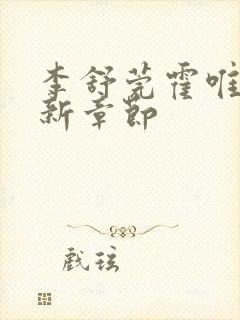 李舒莞霍唯
新章節
戲玹